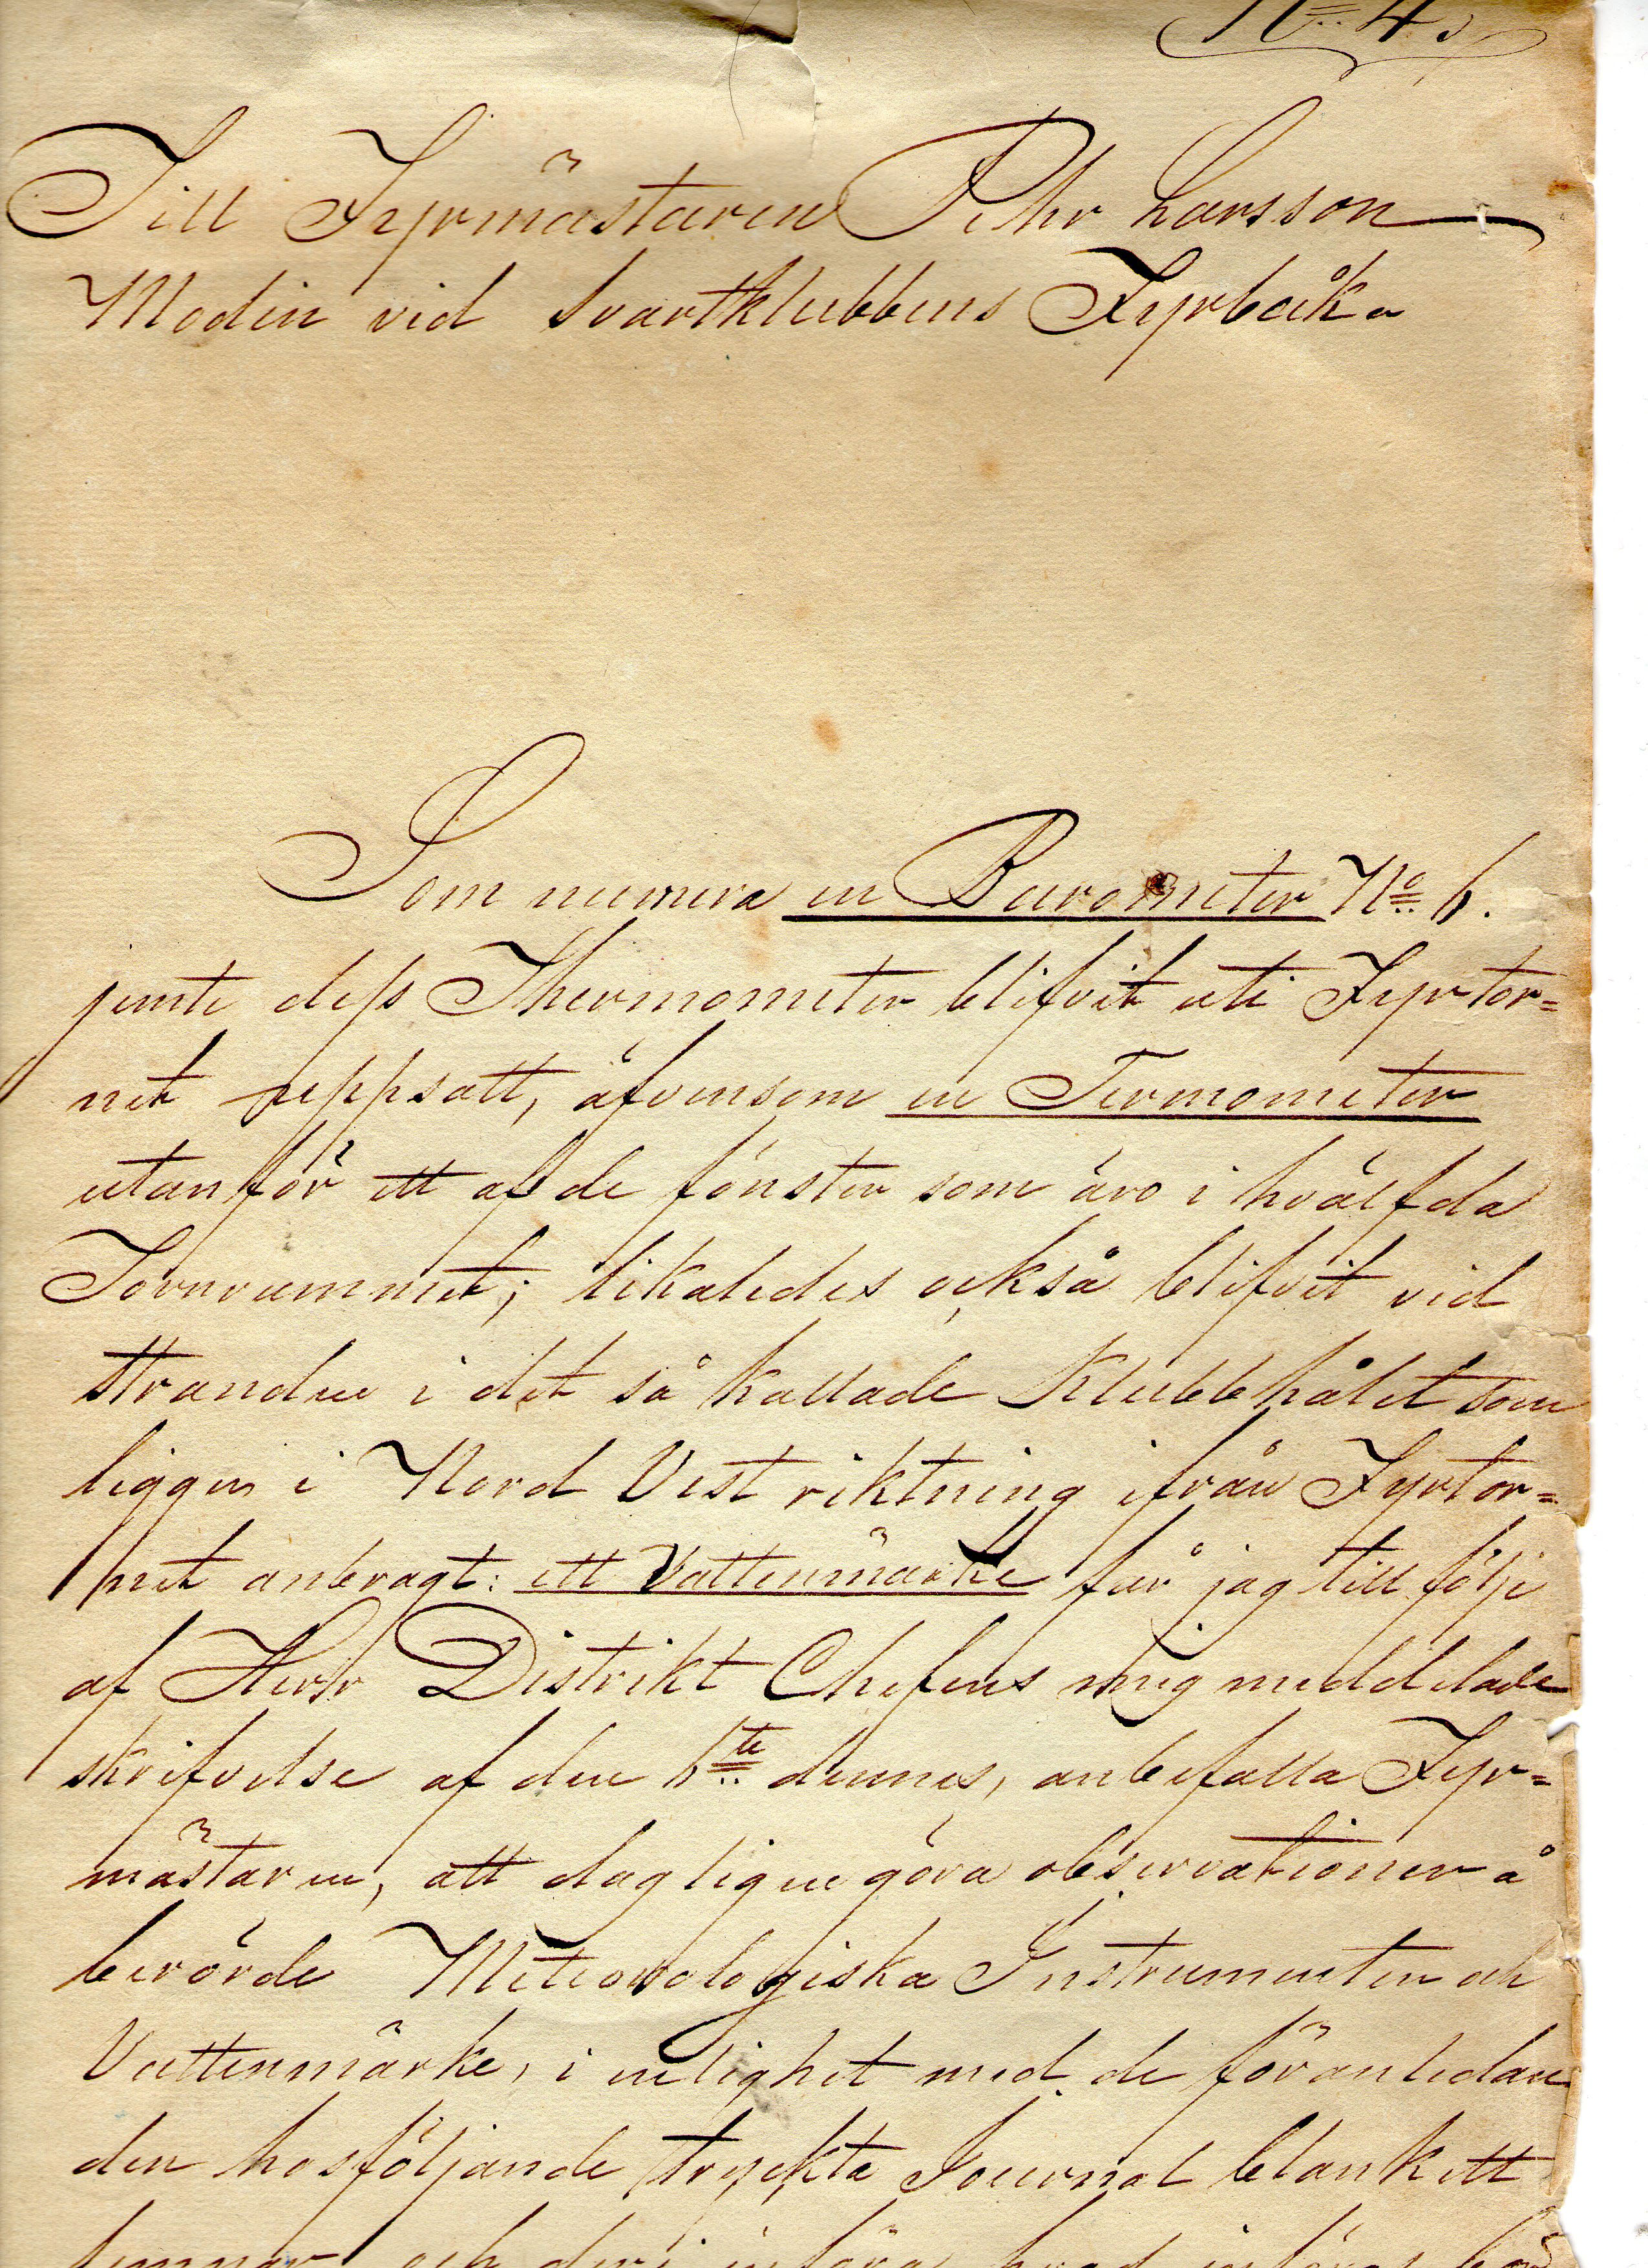 No 4.
Till Fyrmästaren Pehr Larsson
Modin vid Svartklubbens Fyrbåk.
Som numera en Barometer No 6.
jemte dess Thermometer blifvit uti Fyrtor=
net uppsatt, äfvensom en Termometer
utanför ett af de fönster som äro i hvälfda
Tornrummet; likaledes också blifvit vid
stranden i det så kallade Klubbhålet som
ligger i Nord Vest riktning ifrån Fyrtor=
net anbragt: ett Vattenmärke får jag till följe
af Herr Distrikt Chefens mig meddelade
skrifvelse af den 6te dennes, anbefalla Fyr=
mästaren, att dagligen göra observationer å
berörde Meteorologiska Instrumenter och
Vattenmärke, i enlighet med de föranledan
den hosföljande tryckta Journal blankett
lemnar och deri införa hvad införas bör